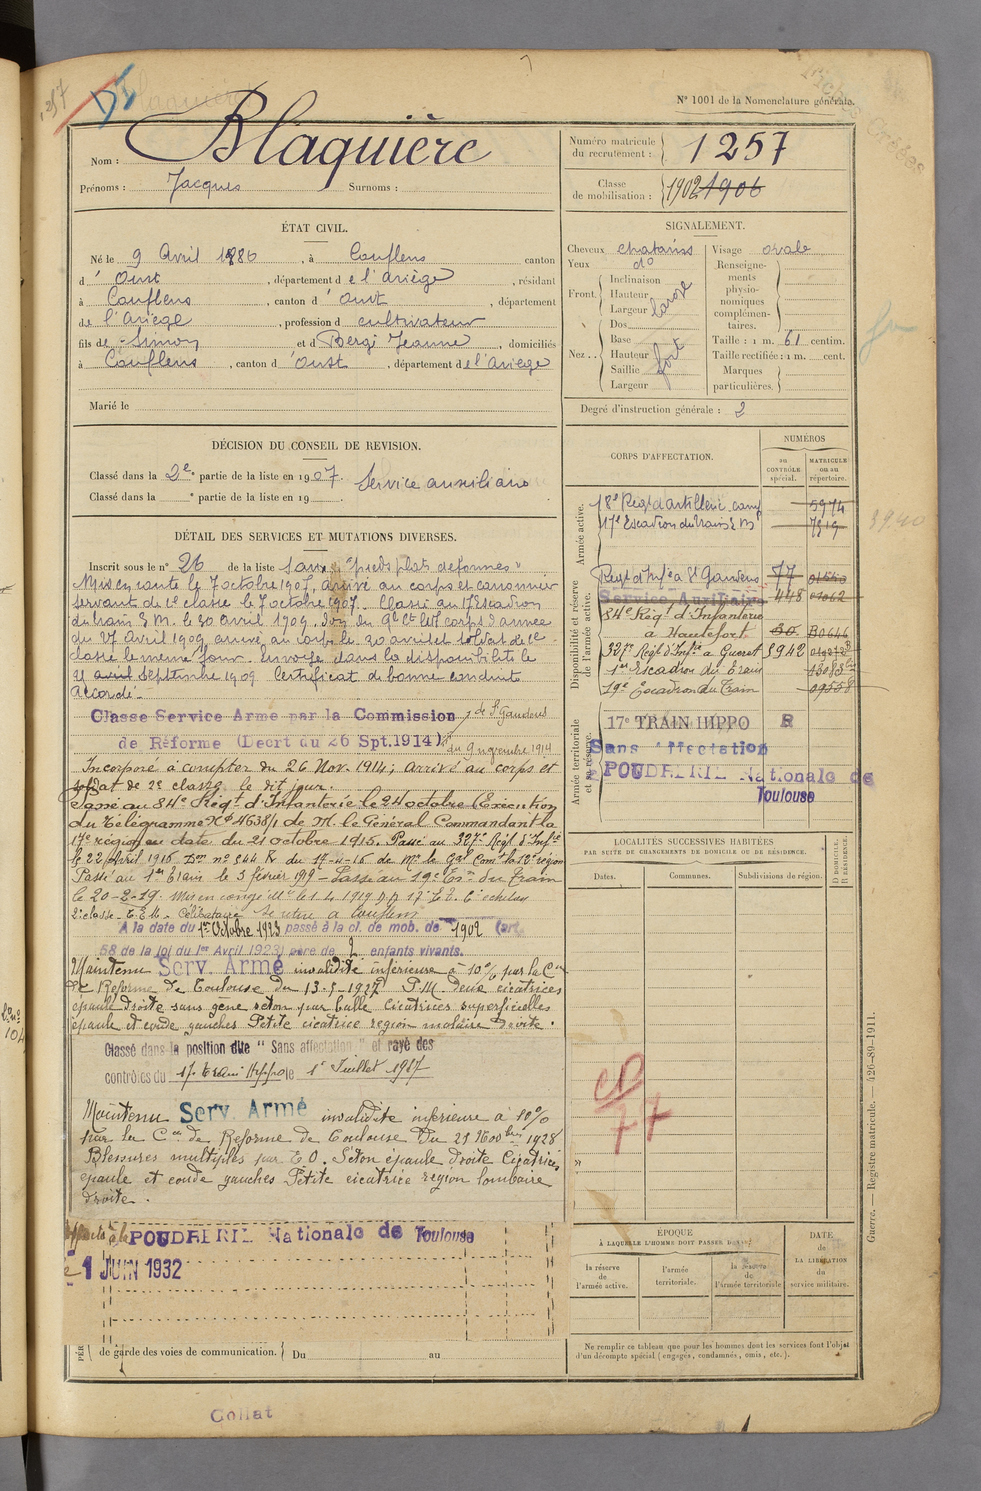 N° 1001 de la Nomenclature générale.
Nom : Blaquière
Prénoms : Jacques Surnoms :
Numéro matricule du recrutement : 1257
Classe de mobilisation : 1902 1906
ÉTAT CIVIL.
Né le 9 Avril 1886, à Couflens canton
d' Oust, département de l'Ariège, résidant
à Couflens, canton d'Oust, département
de l'Ariège, profession d cultivateur
fils de Simon et d Bergi Jeanne, domiciliés
à Couflens, canton d'Oust, département de l'Ariège
Marié le
SIGNALEMENT.
Cheveux chatains
Yeux do
Front. Inclinaison
Hauteur
Largeur
large
Nez.. Dos
Base
Hauteur
Saillie
Largeur
fort
Visage ovale
Renseignements physionomiques complémentaires.
Taille : 1 m. 61 centim.
Taille rectifiée : 1 m. cent.
Marques particulières.
Degré d'instruction générale : 2
DÉCISION DU CONSEIL DE REVISION.
Classé dans la 2e partie de la liste en 1907. Service auxiliaire
Classé dans la e partie de la liste en 19
DÉTAIL DES SERVICES ET MUTATIONS DIVERSES.
Inscrit sous le n° 26 de la liste "pieds plats deformés"
Mis en route le 7 octobre 1907, arrivé au corps et canonnier
servant de 2e classe le 7 octobre 1907. Classé au 17 Escadron
du train E.M. le 30 avril 1909.
du 27 Avril 1909 arrivé au corps le 30 avril et soldat de 2e
classe le même jour. Envoyé dans la disponibilité le
21 avril Septembre 1909 Certificat de bonne conduite
Accordé.
Classe Service Arme par la Commission de St Gaudens
de Réforme (Decrt du 26 Spt.1914) du 9 novembre 1914
Incorporé à compter du 26 Nov. 1914; arrivé au corps et
soldat de 2e classe le dit jour.
Passé au 84e Régt d'Infanterie le 24 octobre (Exécution
du Télégramme N° 4638/1 de M. le Général Commandant la
17e région en date du 21 octobre 1915. Passé au 327e Régt d'Infie
le 22 Avril 1916 Don n° 544 K du 17-4-16 de Mr le Gal Comt la 12e région
Passé au 1er Train le 3 février 1919 - Passé au 19e Eson du Train
le 20-2-19. Mis en congé
2e classe - Célibataire Se retire à Couflens
A la date du 1er Octobre 1923 passé à la cl. de mob. de 1902 (art.
58 de la loi du 1er Avril 1923) père de 2 enfants vivants.
Maintenu Serv. Armé invalidité inférieure à 10% par la Con
de Réforme de Toulouse du 13-5-1927 P.M. deux cicatrices
épaule droite sans gêne séton par balle Cicatrices superficielles
épaule et coude gauches Petite cicatrice région molaire droite.
Classé dans la position dite "Sans affectation" et rayé des
contrôles du 17e Train Hippo le 1er Juillet 1927
Maintenu Serv. Armé invalidité inférieure à 10%
par la Con de Réforme de Toulouse du 21 9bre 1928
Blessures multiples par E O. Séton épaule droite Cicatrices
épaule et coude gauches Petite cicatrice région lombaire
droite.
Affecté à la POUDRERIE Nationale de Toulouse
1 JUIN 1932
de garde des voies de communication. Du au
CORPS D'AFFECTATION.
NUMÉROS
au CONTRÔLE spécial.
MATRICULE ou au répertoire.
Armée active.
18e Régt d'artillerie camp 5974
17e Escadron du train E M 7319
Disponibilité et réserve de l'armée active.
Régt d'Infie à St Gaudens 77
Service Auxiliaire 448
84e Régt d'Infanterie
à Hautefort 30
327e Régt d'Infie à Gueret 5942
1er Escadron du Train
19e Escadron du Train
Armée territoriale et sa réserve.
17e TRAIN HIPPO R
Sans Affectation
POUDRERIE Nationale de
Toulouse
LOCALITÉS SUCCESSIVES HABITÉES
PAR SUITE DE CHANGEMENTS DE DOMICILE OU DE RÉSIDENCE.
Dates. Communes. Subdivisions de région. D DOMICILE. R RÉSIDENCE.
CD
77
ÉPOQUE
À LAQUELLE L'HOMME DOIT PASSER DANS :
la réserve de l'armée active.
l'armée territoriale.
la réserve de l'armée territoriale
DATE de LA LIBÉRATION du service militaire.
Ne remplir ce tableau que pour les hommes dont les services font l'objet
d'un décompte spécial (engagés, condamnés, omis, etc.).
Guerre. — Registre matricule. — 426-89-1911.
Collat